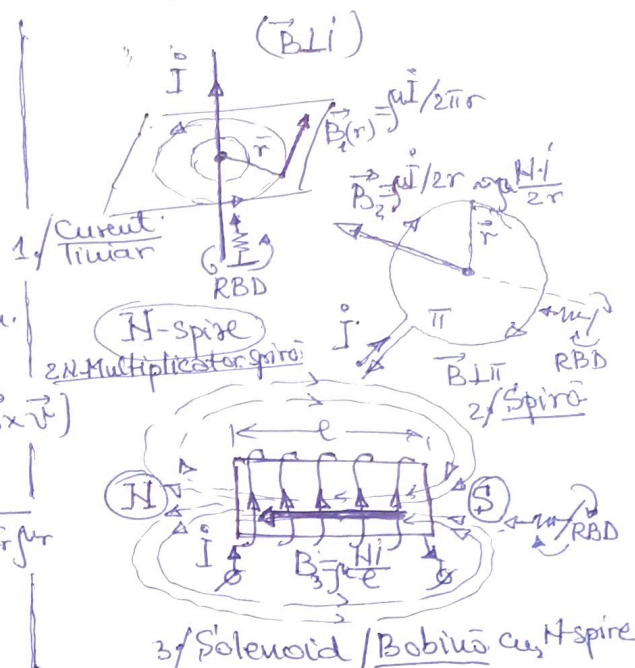 (B⃗⊥i)
I
r⃗
B⃗₁(r)=μI/2πr
1./ Curent liniar
RBD
B⃗₂=μI/2r
μ N·i/2r
r⃗
I
π
B⃗⊥π
RBD
2/ Spiră
N-spire
2N-Multiplicator spiră
x v⃗)
l
N
S
I
B₃=μ Ni/l
RBD
r μr
3/ Solenoid / Bobină cu N-spire